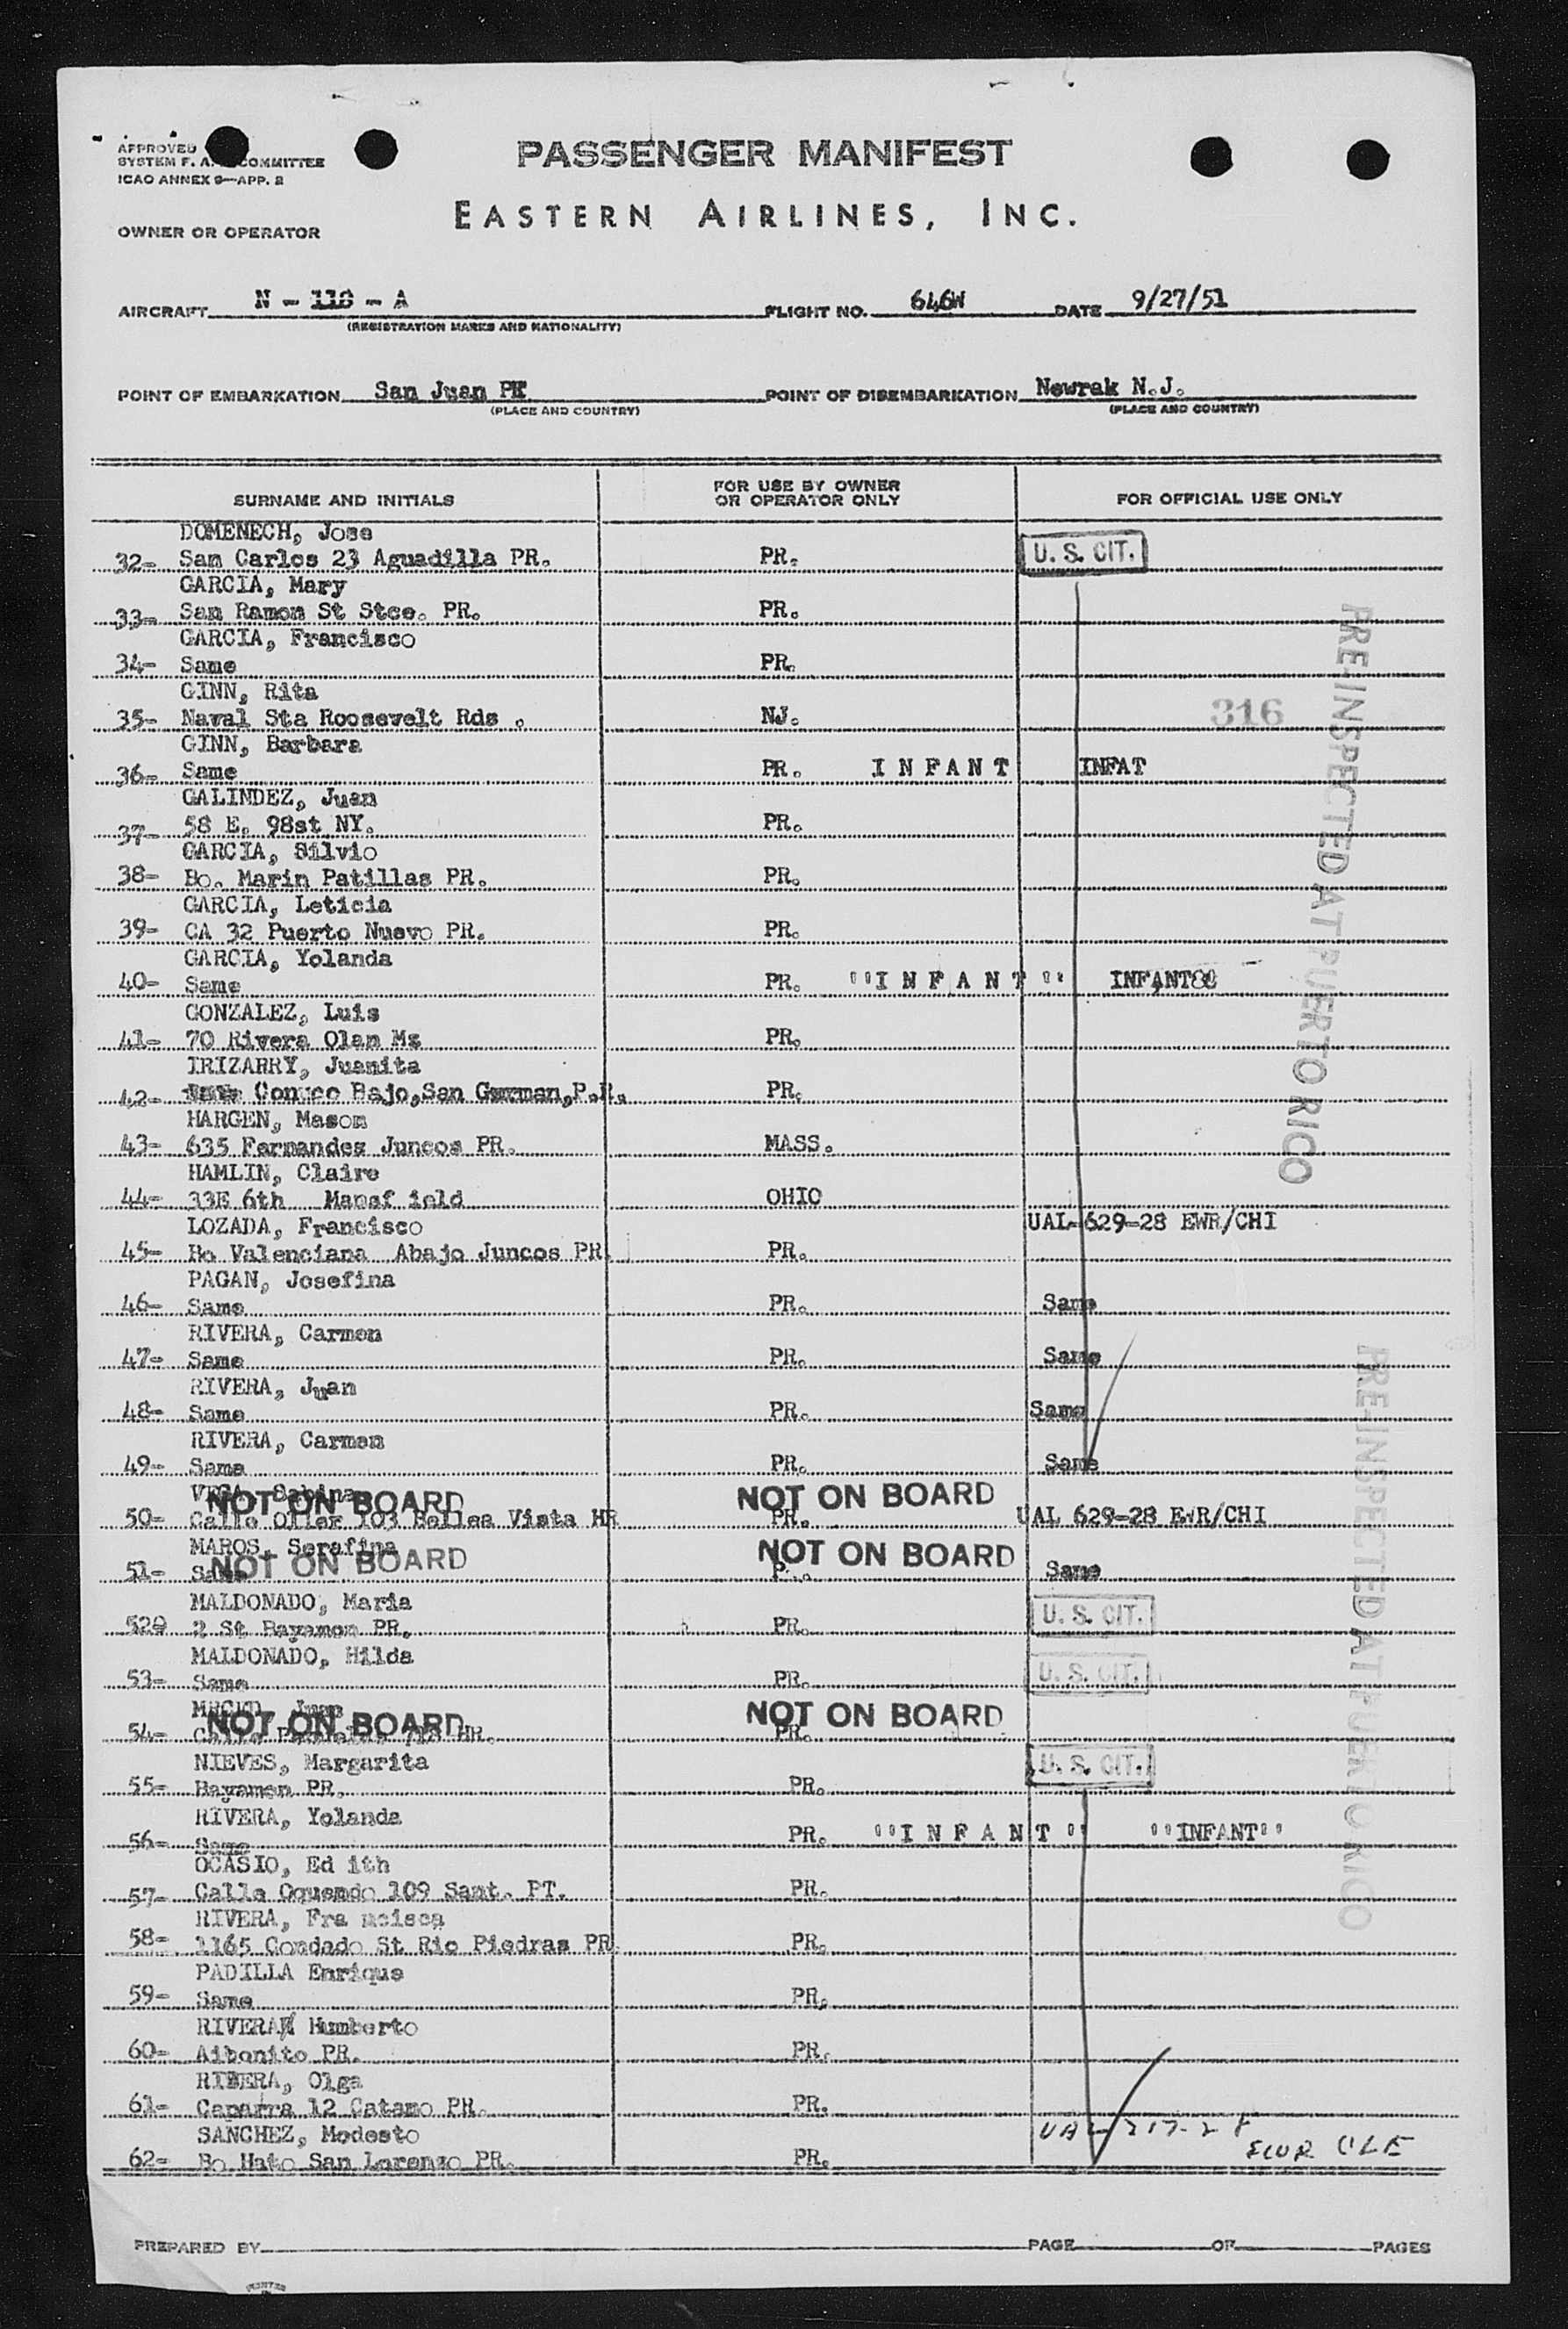 APPROVED
SYSTEM F. A. COMMITTEE
ICAO ANNEX 9—APP. 2
PASSENGER MANIFEST
EASTERN AIRLINES, INC.
OWNER OR OPERATOR
AIRCRAFT N - 118 - A FLIGHT NO. 646W DATE 9/27/51
(REGISTRATION MARKS AND NATIONALITY)
POINT OF EMBARKATION San Juan PR POINT OF DISEMBARKATION Newrak N.J.
(PLACE AND COUNTRY) (PLACE AND COUNTRY)
SURNAME AND INITIALS FOR USE BY OWNER OR OPERATOR ONLY FOR OFFICIAL USE ONLY
DOMENECH, Jose
32- San Carlos 23 Aguadilla PR. PR. U. S. CIT.
GARCIA, Mary
33- San Ramon St Stce. PR. PR.
GARCIA, Francisco
34- Same PR.
GINN, Rita
35- Naval Sta Roosevelt Rds . NJ. 316
GINN, Barbara
36- Same PR. I N F A N T INFAT
GALINDEZ, Juan
37- 58 E. 98st NY. PR.
GARCIA, Silvio
38- Bo. Marin Patillas PR. PR.
GARCIA, Leticia
39- CA 32 Puerto Nuevo PR. PR.
GARCIA, Yolanda
40- Same PR. "I N F A N T" INFANT
GONZALEZ, Luis
41- 70 Rivera Olan Mz PR.
IRIZARRY, Juanita
42- Conuco Bajo,San German,P.R. PR.
HARGEN, Mason
43- 635 Fernandez Juncos PR. MASS.
HAMLIN, Claire
44- 33E 6th Mansf ield OHIO
LOZADA, Francisco UAL-629-28 EWR/CHI
45- Bo Valenciana Abajo Juncos PR. PR.
PAGAN, Josefina
46- Same PR. Same
RIVERA, Carmen
47- Same PR. Same
RIVERA, Juan
48- Same PR. Same
RIVERA, Carmen
49- Same PR. Same
VEGA, Sabina
NOT ON BOARD NOT ON BOARD
50- Calle Oller 103 Bellea Vista HR PR. UAL 629-28 EWR/CHI
MAROS, Serafina
NOT ON BOARD NOT ON BOARD
51- Same P.. Same
MALDONADO, Maria
52- 2 St Bayamon PR. PR. U. S. CIT.
MALDONADO, Hilda
53- Same PR. U. S. CIT.
Juan
NOT ON BOARD NOT ON BOARD
54- HR. PR.
NIEVES, Margarita
55- Bayamon PR. PR. U. S. CIT.
RIVERA, Yolanda
56- Same PR. "I N F A N T" "INFANT"
OCASIO, Ed ith
57- Calle Oquendo 109 Sant. PT. PR.
RIVERA, Fra ncisca
58- 1165 Condado St Rio Piedras PR. PR.
PADILLA Enrique
59- Same PR.
RIVERA Humberto
60- Aibonito PR. PR.
RIBERA, Olga
61- Caparra 12 Catano PR. PR.
SANCHEZ, Modesto UAL 217-28
62- Bo Hato San Lorenzo PR. PR. EWR CLE
PRE-INSPECTED AT PUERTO RICO
PRE-INSPECTED AT PUERTO RICO
PREPARED BY PAGE OF PAGES